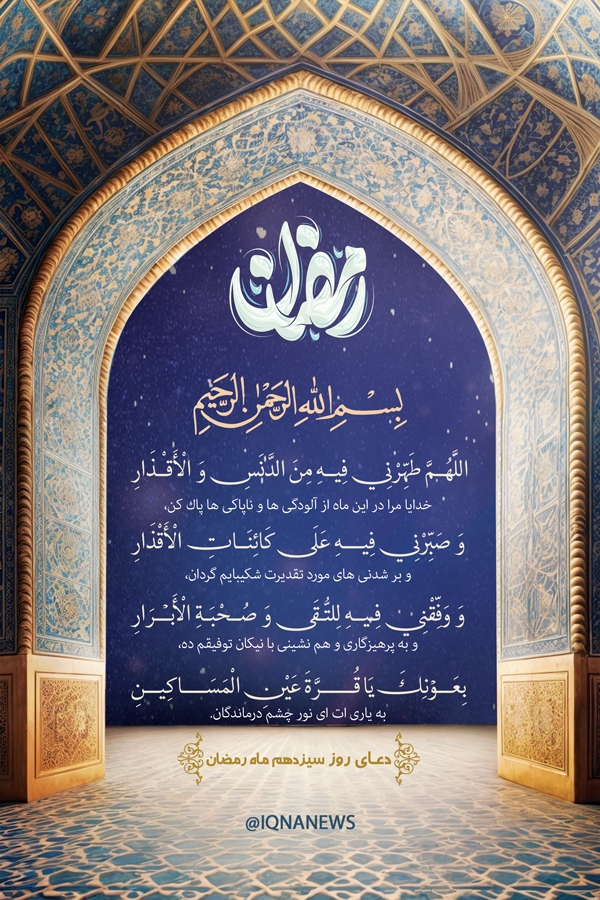 رمضان
بِسْمِ اللهِ الرَّحْمٰنِ الرَّحيمِ
اللَّهُمَّ طَهِّرْنِي فِيهِ مِنَ الدَّنَسِ وَ الْأَقْذَارِ
خدایا مرا در این ماه از آلودگی ها و ناپاکی ها پاك کن،
وَ صَبِّرْنِي فِيهِ عَلَى كَائِنَاتِ الْأَقْدَارِ
و بر شدنی های مورد تقدیرت شکیبایم گردان،
وَ وَفِّقْنِي فِيهِ لِلتُّقَى وَ صُحْبَةِ الْأَبْرَارِ
و به پرهیزگاری و هم نشینی با نیکان توفیقم ده،
بِعَوْنِكَ يَا قُرَّةَ عَيْنِ الْمَسَاكِينِ
به یاری ات ای نور چشم درماندگان.
دعای روز سیزدهم ماه رمضان
@IQNANEWS